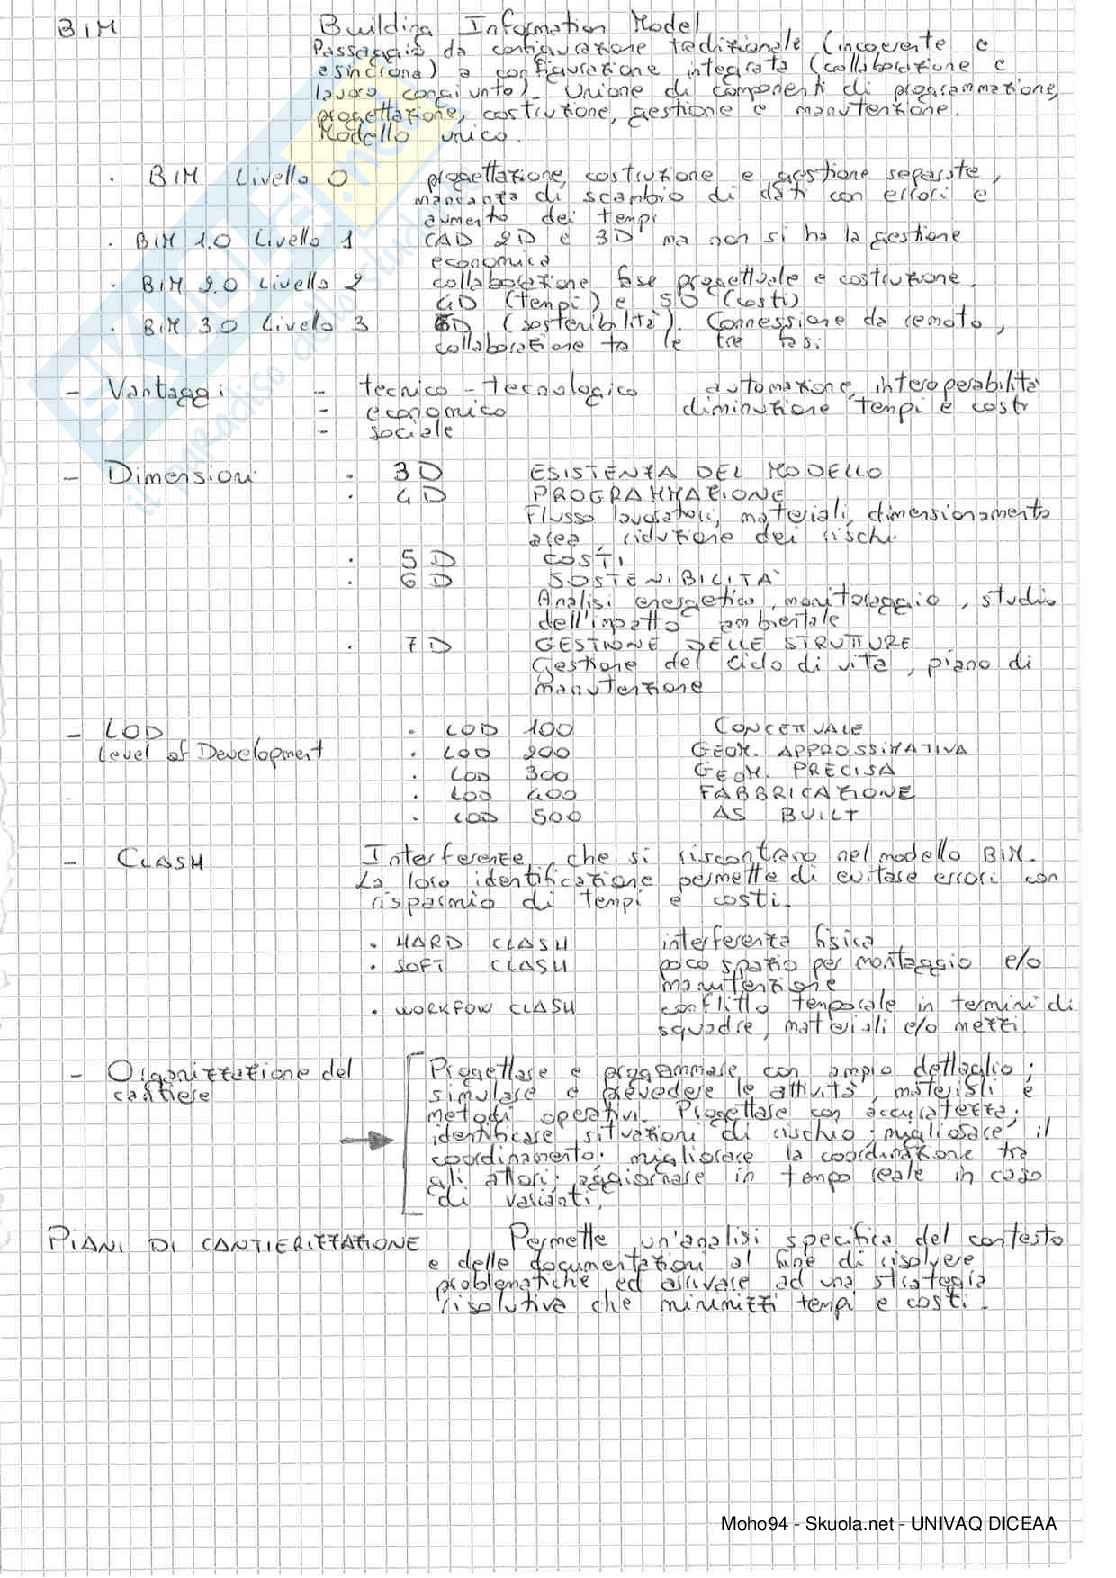 BIM Building Information Model
Passaggio da configurazione tradizionale (incoerente e
asincrona) a configurazione integrata (collaborazione e
lavoro congiunto). Unione di componenti di programmazione,
progettazione, costruzione, gestione e manutenzione.
Modello unico.
· BIM Livello 0 progettazione, costruzione e gestione separate,
mancanza di scambio di dati con errori e
aumento dei tempi
· BIM 1.0 Livello 1 CAD 2D e 3D ma non si ha la gestione
economica
· BIM 2.0 Livello 2 collaborazione fase progettuale e costruzione,
4D (tempi) e 5D (costi)
· BIM 3.0 Livello 3 6D (sostenibilità). Connessione da remoto,
collaborazione tra le tre fasi
- Vantaggi - tecnico-tecnologico automazione, interoperabilità
- economico diminuzione tempi e costi
- sociale
- Dimensioni · 3D ESISTENZA DEL MODELLO
· 4D PROGRAMMAZIONE
Flusso lavoratori, materiali, dimensionamento
area, riduzione dei rischi
· 5D COSTI
· 6D SOSTENIBILITÀ
Analisi energetica, monitoraggio, studio
dell'impatto ambientale
· 7D GESTIONE DELLE STRUTTURE
Gestione del ciclo di vita, piano di
manutenzione
- LOD · LOD 100 CONCETTUALE
Level of Development · LOD 200 GEOM. APPROSSIMATIVA
· LOD 300 GEOM. PRECISA
· LOD 400 FABBRICAZIONE
· LOD 500 AS BUILT
- CLASH Interferenze, che si riscontrano nel modello BIM.
La loro identificazione permette di evitare errori con
risparmio di tempi e costi.
· HARD CLASH interferenza fisica
· SOFT CLASH poco spazio per montaggio e/o
manutenzione
· WORKFOW CLASH conflitto temporale in termini di
squadre, materiali e/o mezzi
- Organizzazione del Progettare e programmare con ampio dettaglio;
cantiere simulare e prevedere le attività, materiali e
metodi operativi. Progettare con accuratezza;
identificare situazioni di rischio; migliorare il
coordinamento; migliorare la coordinazione tra
gli attori; aggiornare in tempo reale in caso
di varianti.
PIANI DI CANTIERIZZAZIONE Permette un'analisi specifica del contesto
e delle documentazioni al fine di risolvere
problematiche ed arrivare ad una strategia
risolutiva che minimizzi tempi e costi.
Moho94 - Skuola.net - UNIVAQ DICEAA